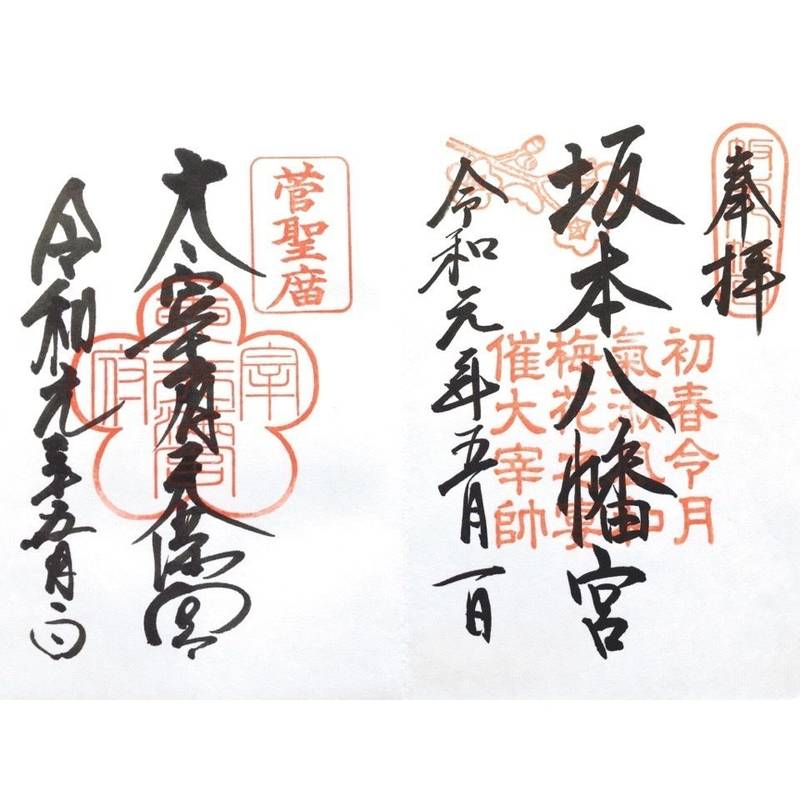 奉拝
坂本八幡宮
初春令月
氣淑風和
梅花之宴
催大宰帥
令和元年五月一日
菅聖庿
太宰府天満宮
宰
府
令和元年五月一日